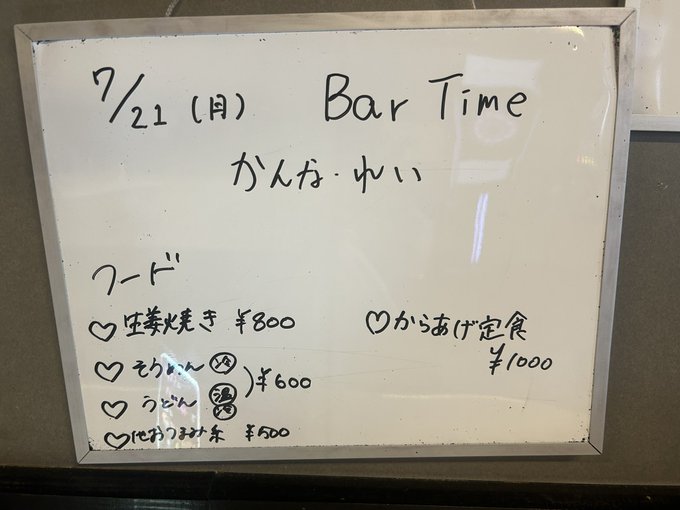 7/21(月) Bar Time
かんな・れい
フード
♡生姜焼き ¥800
♡そうめん 冷
♡うどん 温 冷
¥600
♡他おつまみ系 ¥500
♡からあげ定食
¥1000